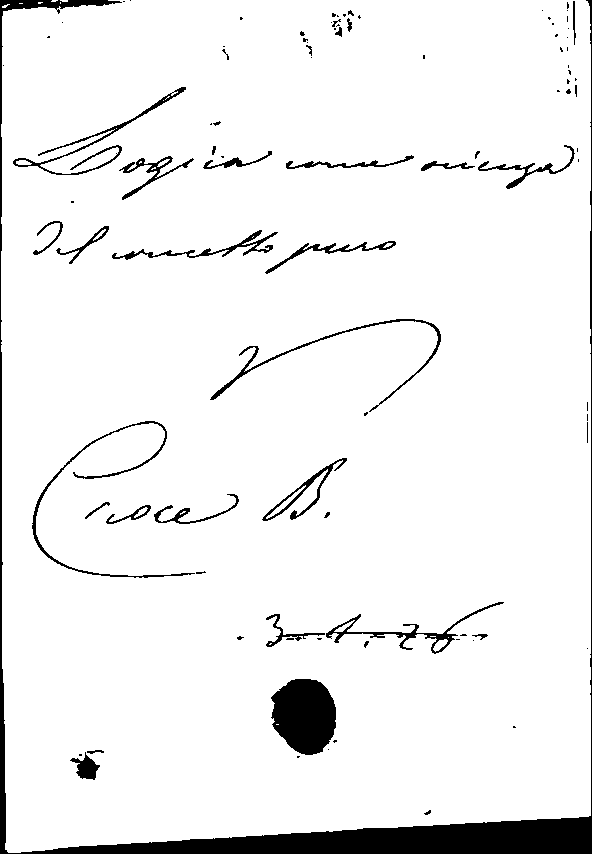 Logica come scienza
del concetto puro
Croce B.
3.1.26